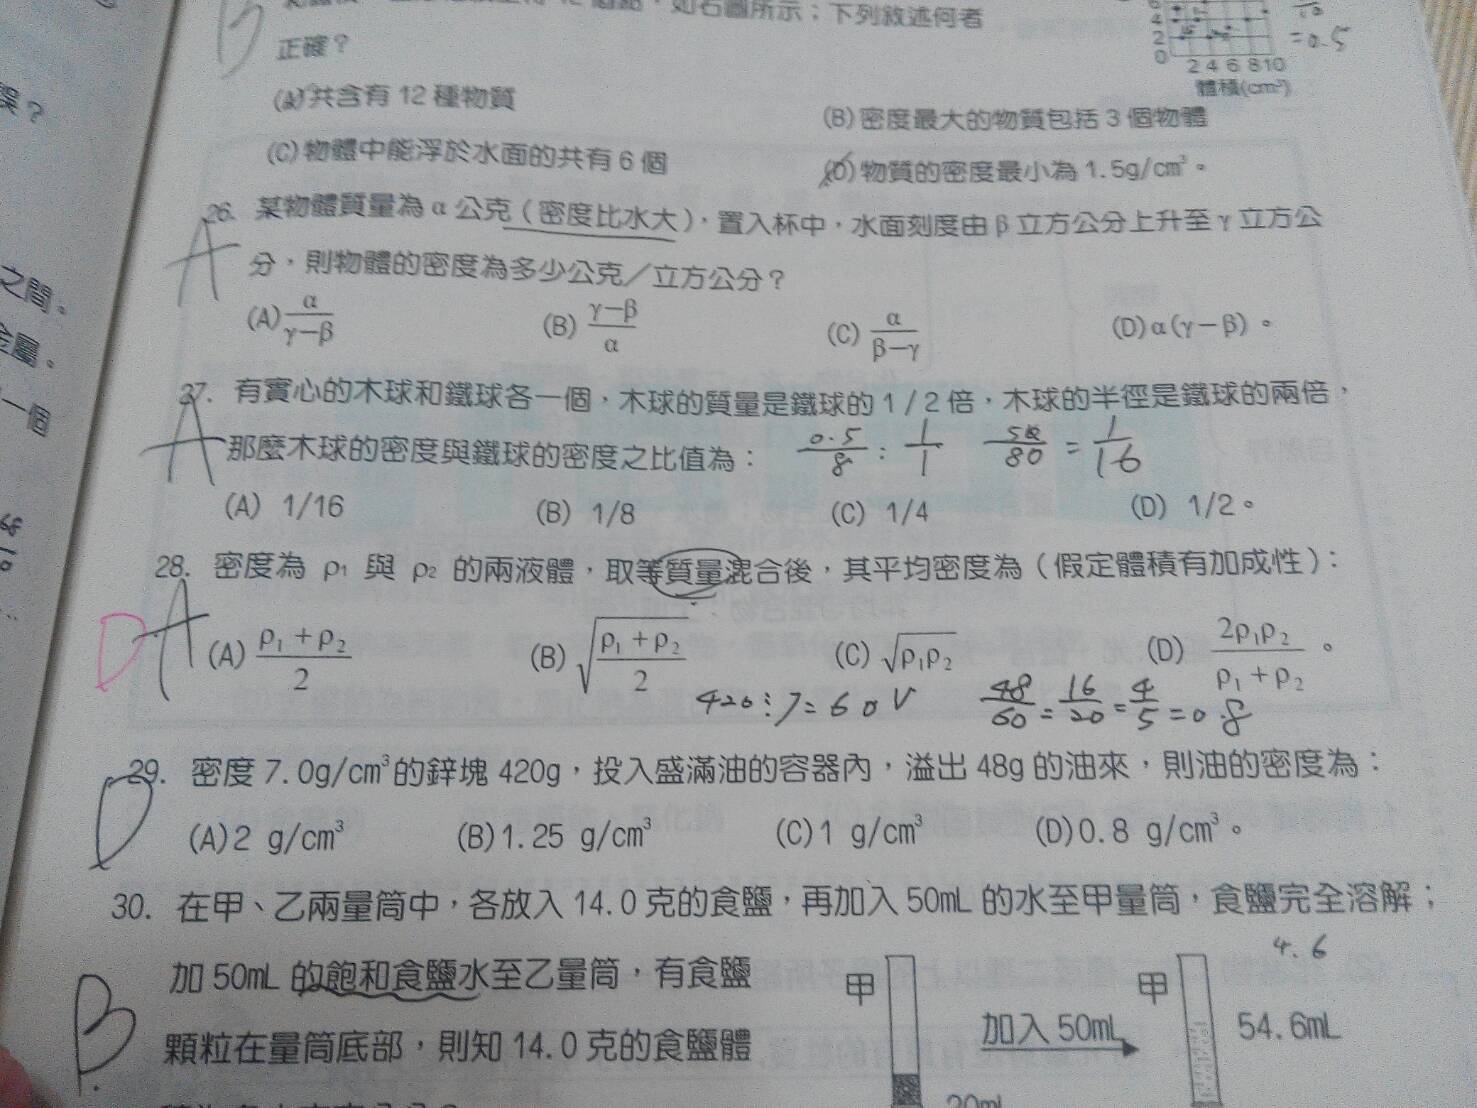 如右圖所示；下列敘述何者
正確？
(A)共含有 12 種物質
(B)密度最大的物質包括 3 個物體
(C)物體中能浮於水面的共有 6 個
(D)物質的密度最小為 1.5g/cm³。
4
2
0
2 4 6 8 10
體積(cm³)
=0.5
B
誤？
之間。
金屬。
一個
26. 某物體質量為 α 公克（密度比水大），置入杯中，水面刻度由 β 立方公分上升至 γ 立方公
分，則物體的密度為多少公克／立方公分？
A
(A) α/(γ−β) (B) (γ−β)/α (C) α/(β−γ) (D) α(γ−β)。
27. 有實心的木球和鐵球各一個，木球的質量是鐵球的 1/2 倍，木球的半徑是鐵球的兩倍，
那麼木球的密度與鐵球的密度之比值為：
0.5/8 : 1/1 50/80 = 1/16
A
(A) 1/16 (B) 1/8 (C) 1/4 (D) 1/2。
28. 密度為 ρ₁ 與 ρ₂ 的兩液體，取等質量混合後，其平均密度為（假定體積有加成性）：
D A
(A) (ρ₁+ρ₂)/2 (B) √((ρ₁+ρ₂)/2) (C) √(ρ₁ρ₂) (D) 2ρ₁ρ₂/(ρ₁+ρ₂)。
420÷7=60 V 48/60=16/20=4/5=0.8
29. 密度 7.0g/cm³的鋅塊 420g，投入盛滿油的容器內，溢出 48g 的油來，則油的密度為：
D
(A)2 g/cm³ (B)1.25 g/cm³ (C)1 g/cm³ (D)0.8 g/cm³。
30. 在甲、乙兩量筒中，各放入 14.0 克的食鹽，再加入 50mL 的水至甲量筒，食鹽完全溶解；
加 50mL 的飽和食鹽水至乙量筒，有食鹽
顆粒在量筒底部，則知 14.0 克的食鹽體
B
甲
加入 50mL
甲
4.6
54.6mL
20mL